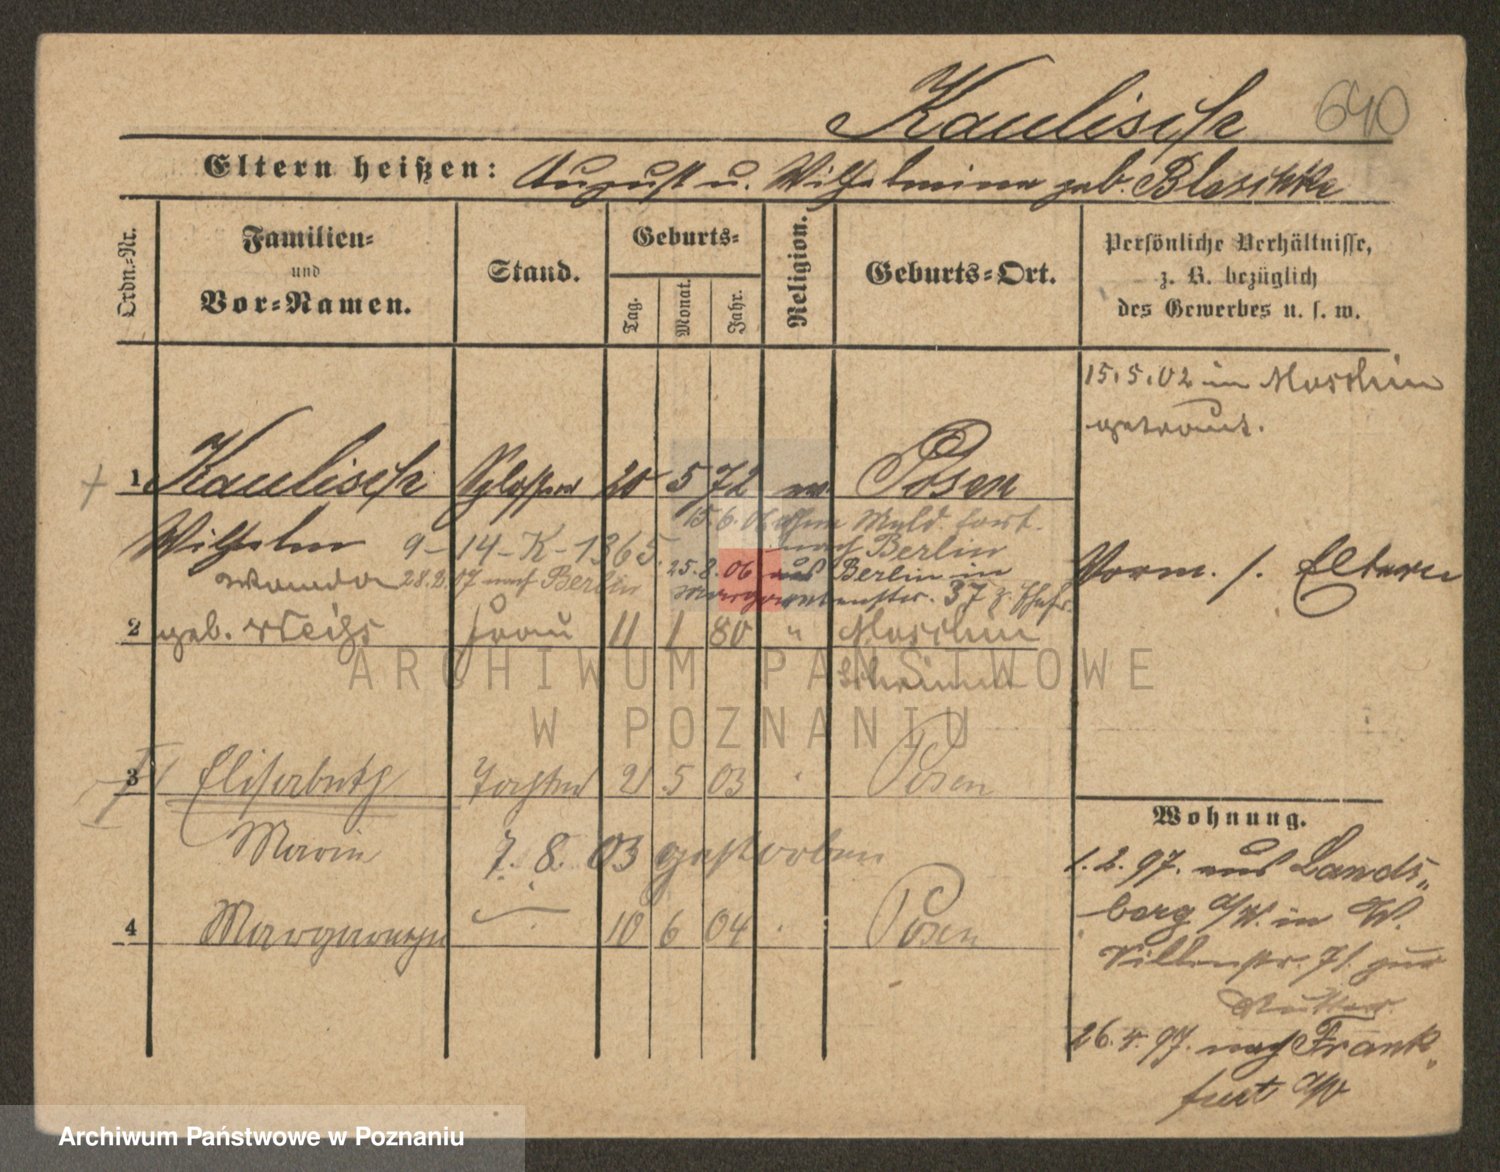 Kaulisch 640
Eltern heißen: August u. Wilhelmine geb. Blaschke
Ordn.-Nr.
Familien-
und
Vor-Namen.
Stand.
Geburts-
Tag.
Monat.
Jahr.
Religion.
Geburts-Ort.
Persönliche Verhältnisse,
z. B. bezüglich
des Gewerbes u. s. w.
15.5.02 in Moschin
getraut.
1 Kaulisch Schlosser 20 5 72 ev. Posen
15.6.06 ohne Meld. fort.
Wilhelm 9-14-K-1365. nach Berlin
25.8.06 aus Berlin in
Wanda 28.2.07 nach Berlin
Margarethenstr. 37 z.
Vorm. s. Eltern
2 geb. Frau 11 1 80 " Moschin
Schrimm
ARCHIWUM PAŃSTWOWE
W POZNANIU
3 Elisabeth Tochter 21 5 03 Posen
Marie 7.8.03 gestorben
4 Margarethe 10 6 04 Posen
Wohnung.
1.2.97. aus Lands-
berg a/W. in W.
71. zur
Mutter.
26.4.97. nach Frank-
furt a/O
Archiwum Państwowe w Poznaniu